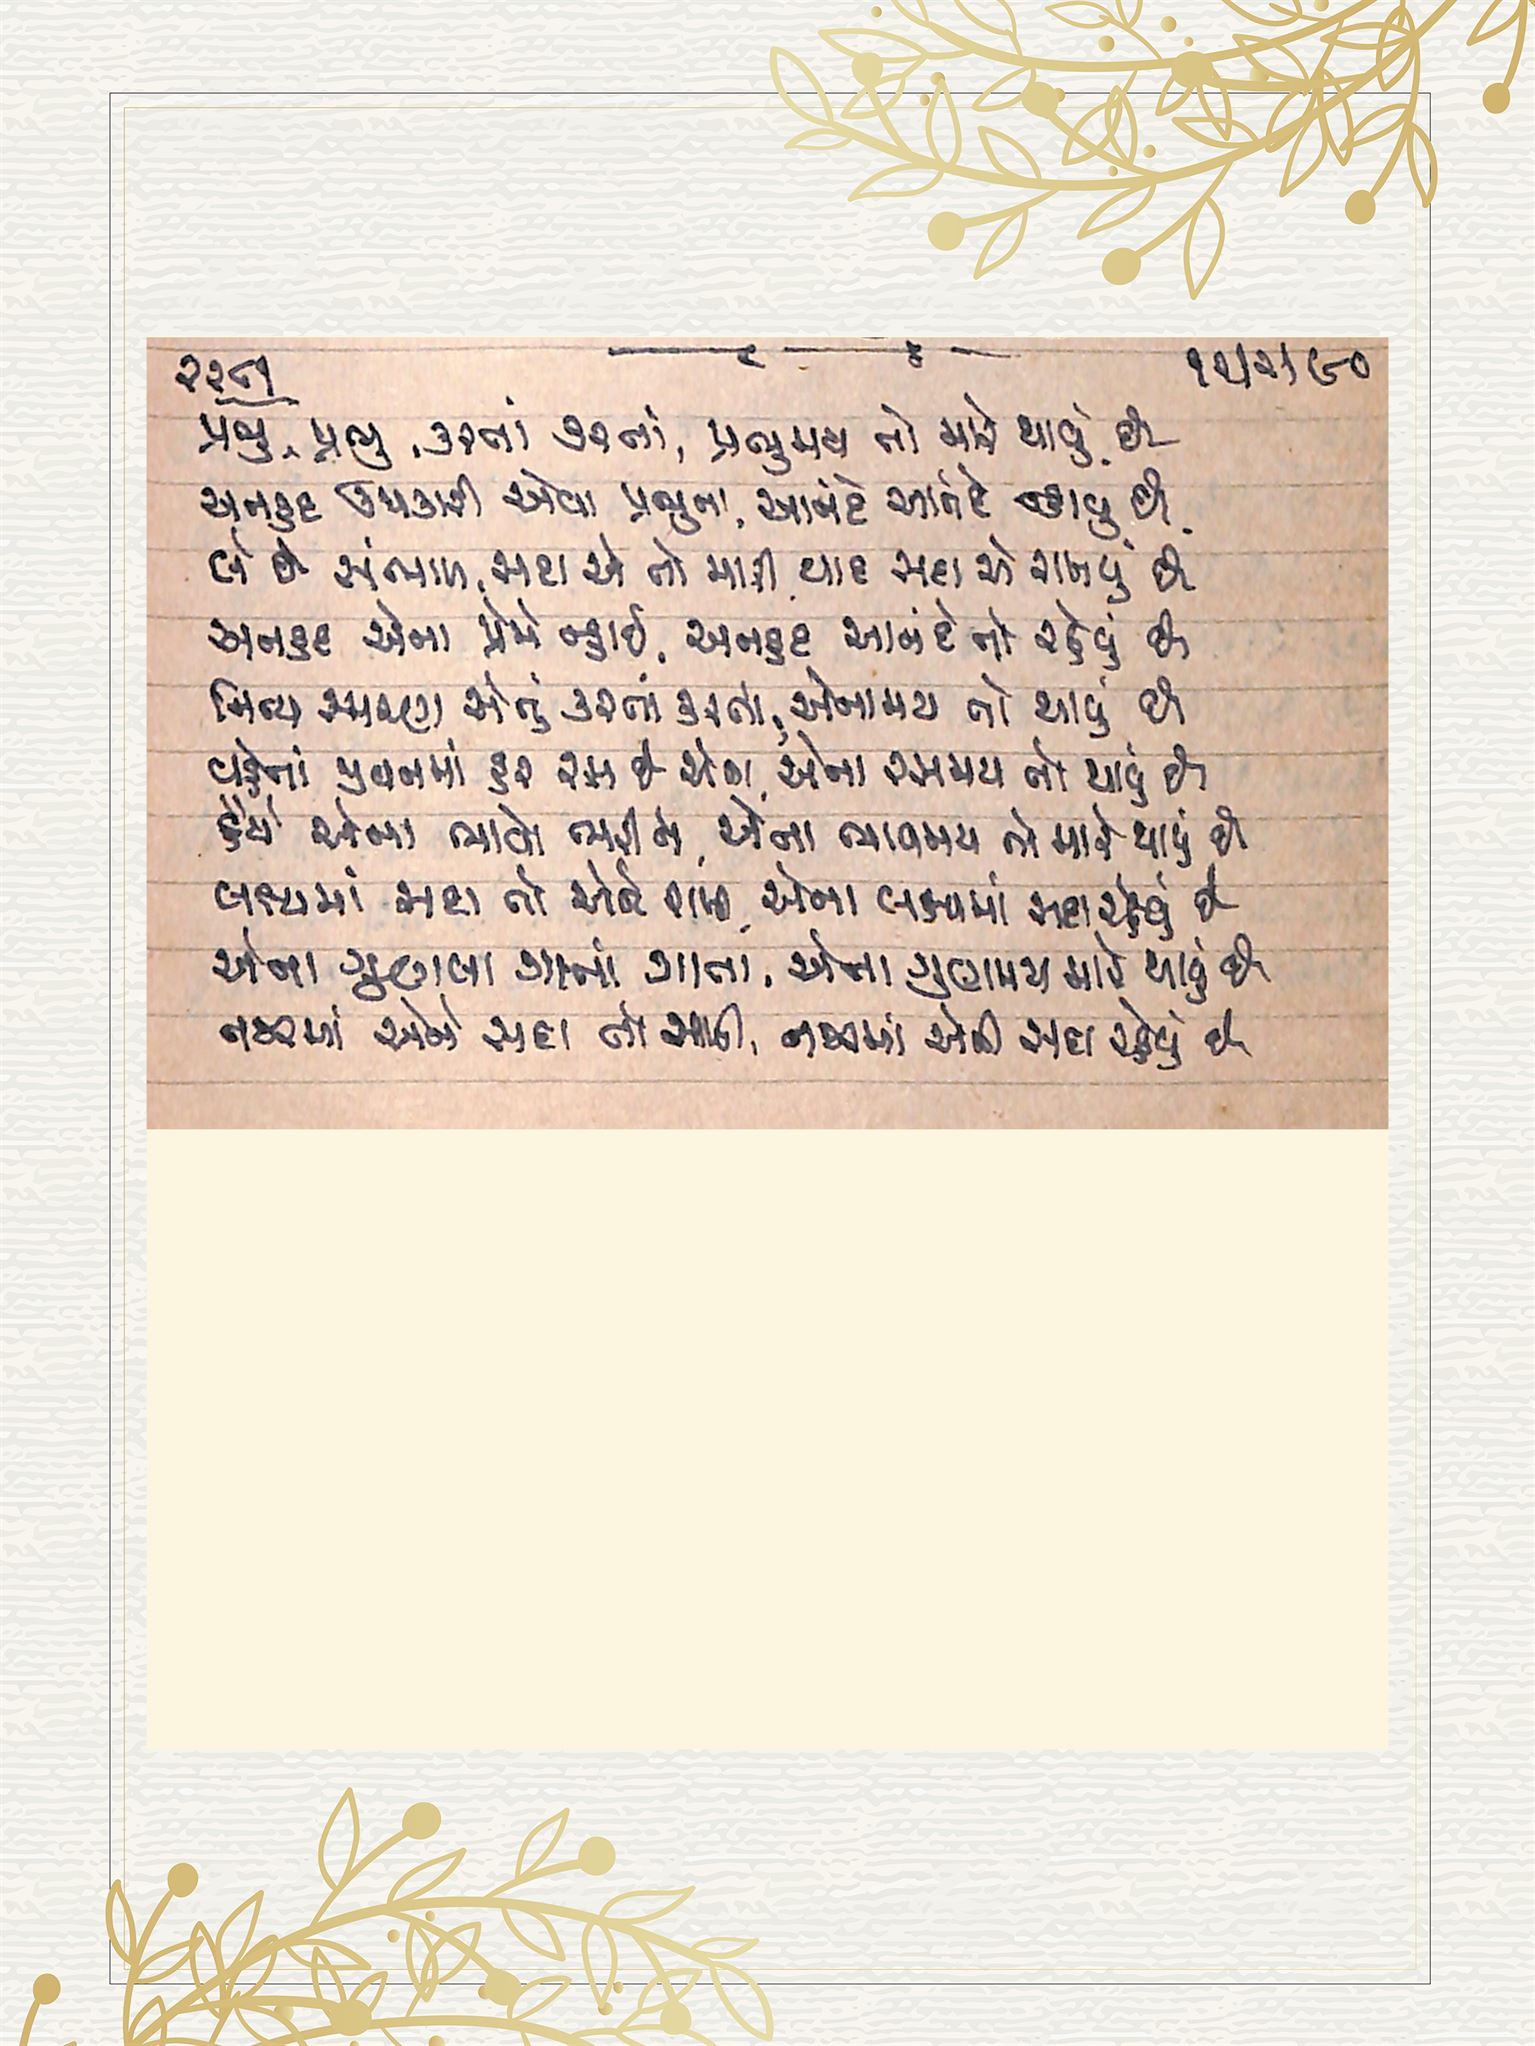 ૨૨ન ૧૨/૨/૯૦
પ્રભુ, પ્રભુ, કરતાં કરતાં, પ્રભુમય તો મારે થાવું છે
અનહદ ઉપકારી એવા પ્રભુના, આનંદે આનંદે ન્હાવું છે
લે છે સંભાળ, સદા એ તો મારી, યાદ સદા એ રાખવું છે
અનહદ એના પ્રેમે ન્હાઈ, અનહદ આનંદે તો રહેવું છે
નિત્ય સ્મરણ એનું કરતાં કરતાં, એનામય તો થાવું છે
વહેતાં પવનમાં હર રસ છે એના, એના રસમય તો થાવું છે
હૈયે એના ભાવો ભરીને, એના ભાવમય તો મારે થાવું છે
લક્ષ્યમાં સદા તો એને રાખી, એના લક્ષ્યમાં સદા રહેવું છે
એના ગુણલા ગાતાં ગાતા, એના ગુણમય મારે થાવું છે
નજરમાં એને સદા તો રાખી, નજરમાં એની સદા રહેવું છે